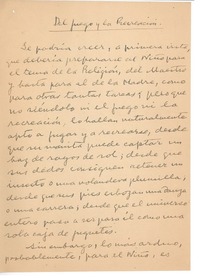 Del juego y la Recreación.
Se podría creer, a primera vista,
que debería prepararse al Niño para
el tema de la Religión, del Maestro
y hasta para el de la Madre, como
para otras tantas tareas; pero que
no siéndolo ni el juego ni la
recreación, lo hallan naturalmente
apto a jugar y a recrearse, desde
que su manita puede captar un
haz de rayos de sol; desde que
sus dedos consiguen detener un
insecto o una volandera plumilla;
desde que sus pies esbozan una danza
o una carrera; desde que el universo
entero pasa a ser para él como una
sola caja de juguetes.
Sin embargo, lo más arduo,
probablemente, para el Niño, es